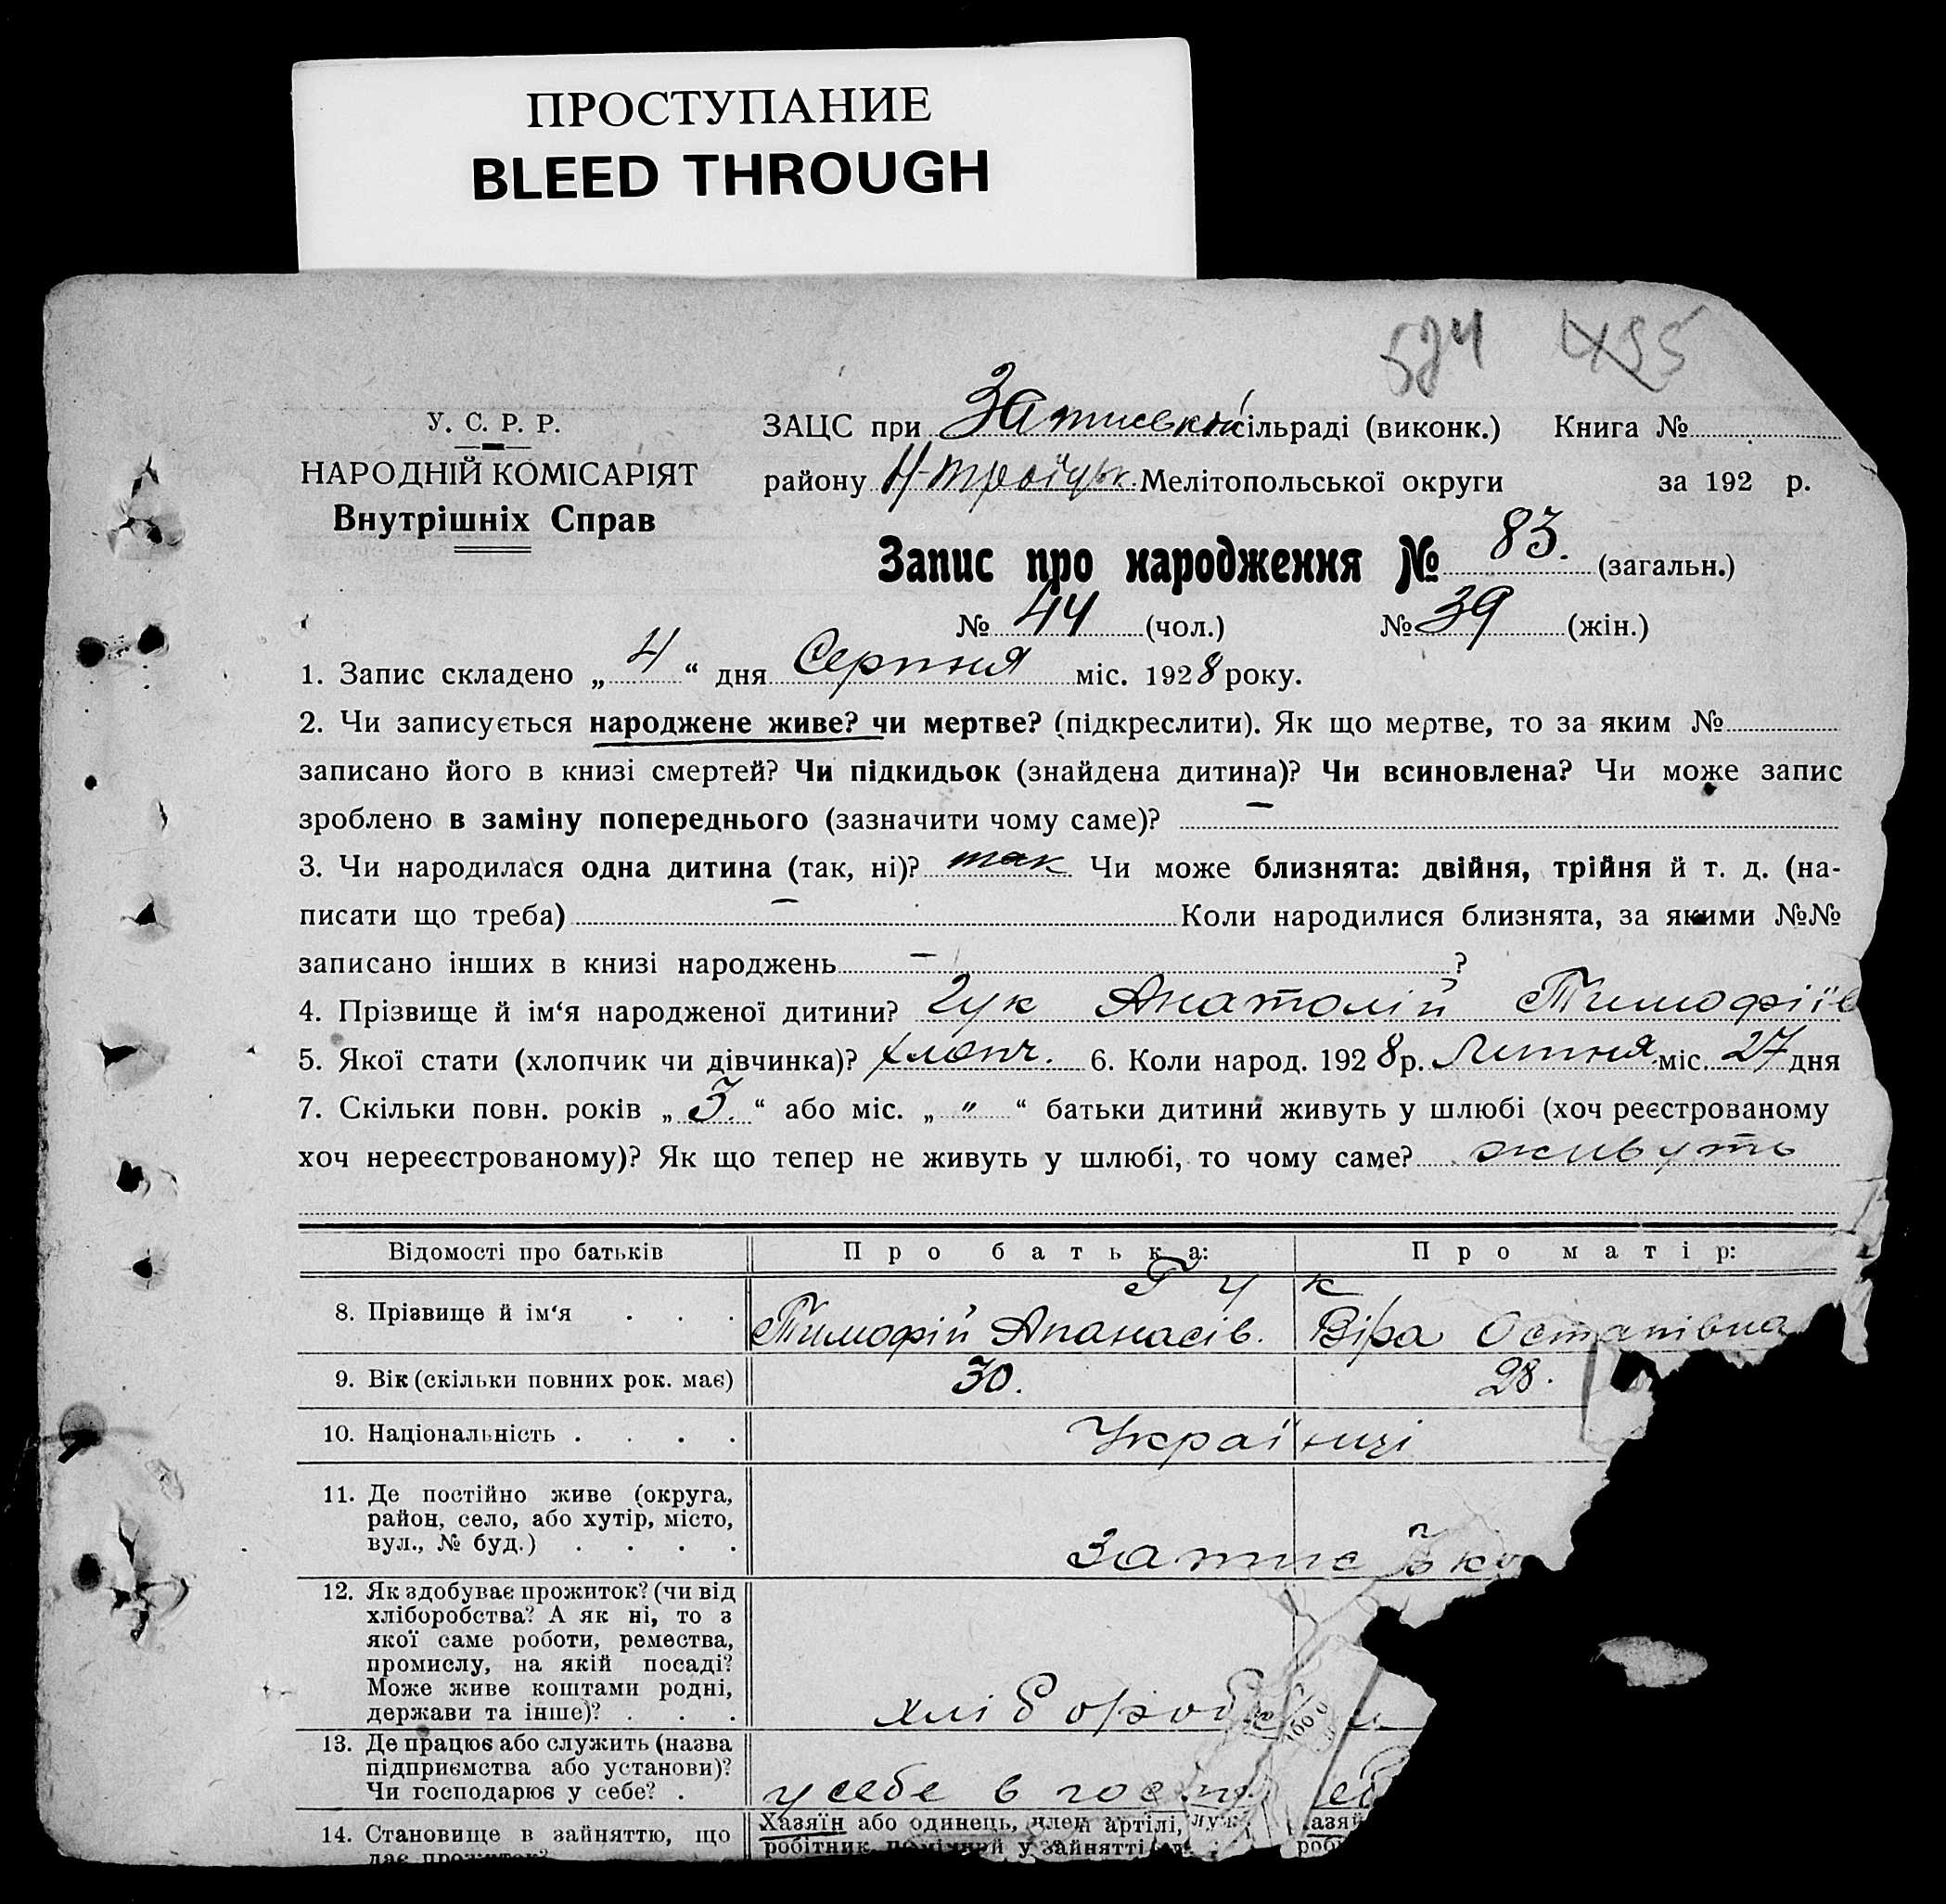 ПРОСТУПАНИЕ
BLEED THROUGH
524 495
У. С. Р. Р.
НАРОДНІЙ КОМІСАРІЯТ
Внутрішніх Справ
ЗАЦС при Затиській сільраді (виконк.) Книга №
району Н-Троїцьк. Мелітопольської округи за 192 р.
Запис про народження № 83. (загальн.)
№ 44 (чол.) № 39 (жін.)
1. Запис складено „ 4 “ дня Серпня міс. 1928 року.
2. Чи записується народжене живе? чи мертве? (підкреслити). Як що мертве, то за яким №
записано його в книзі смертей? Чи підкидьок (знайдена дитина)? Чи всиновлена? Чи може запис
зроблено в заміну попереднього (зазначити чому саме)? —
3. Чи народилася одна дитина (так, ні)? так Чи може близнята: двійня, трійня й т. д. (на-
писати що треба) — Коли народилися близнята, за якими №№
записано інших в книзі народжень — ?
4. Прізвище й ім‘я народженої дитини? Гук Анатолій Тимофіїв
5. Якої стати (хлопчик чи дівчинка)? хлопч. 6. Коли народ. 1928 р. Липня міс. 27 дня
7. Скільки повн. років „ 3. “ або міс. „ " “ батьки дитини живуть у шлюбі (хоч реєстрованому
хоч нереєстрованому)? Як що тепер не живуть у шлюбі, то чому саме? живуть
Відомості про батьків Про батька: Про матір:
Гук
8. Прізвище й ім‘я . . . Тимофій Апанасів. Віра Остапівна
9. Вік (скільки повних рок. має) 30. 28.
10. Національність . . . . Українці
11. Де постійно живе (округа,
район, село, або хутір, місто,
вул., № буд.) . . . . Затис
12. Як здобуває прожиток? (чи від
хліборобства? А як ні, то з
якої саме роботи, ремества,
промислу, на якій посаді?
Може живе коштами родні,
держави та інше)? . . . хлібороб
13. Де працює або служить (назва
підприємства або установи)?
Чи господарює у себе? . у себе в госп.
14. Становище в зайняттю, що Хазяїн або одинець, член артілі,
дає прожиток? робітник помічний у зайнятті